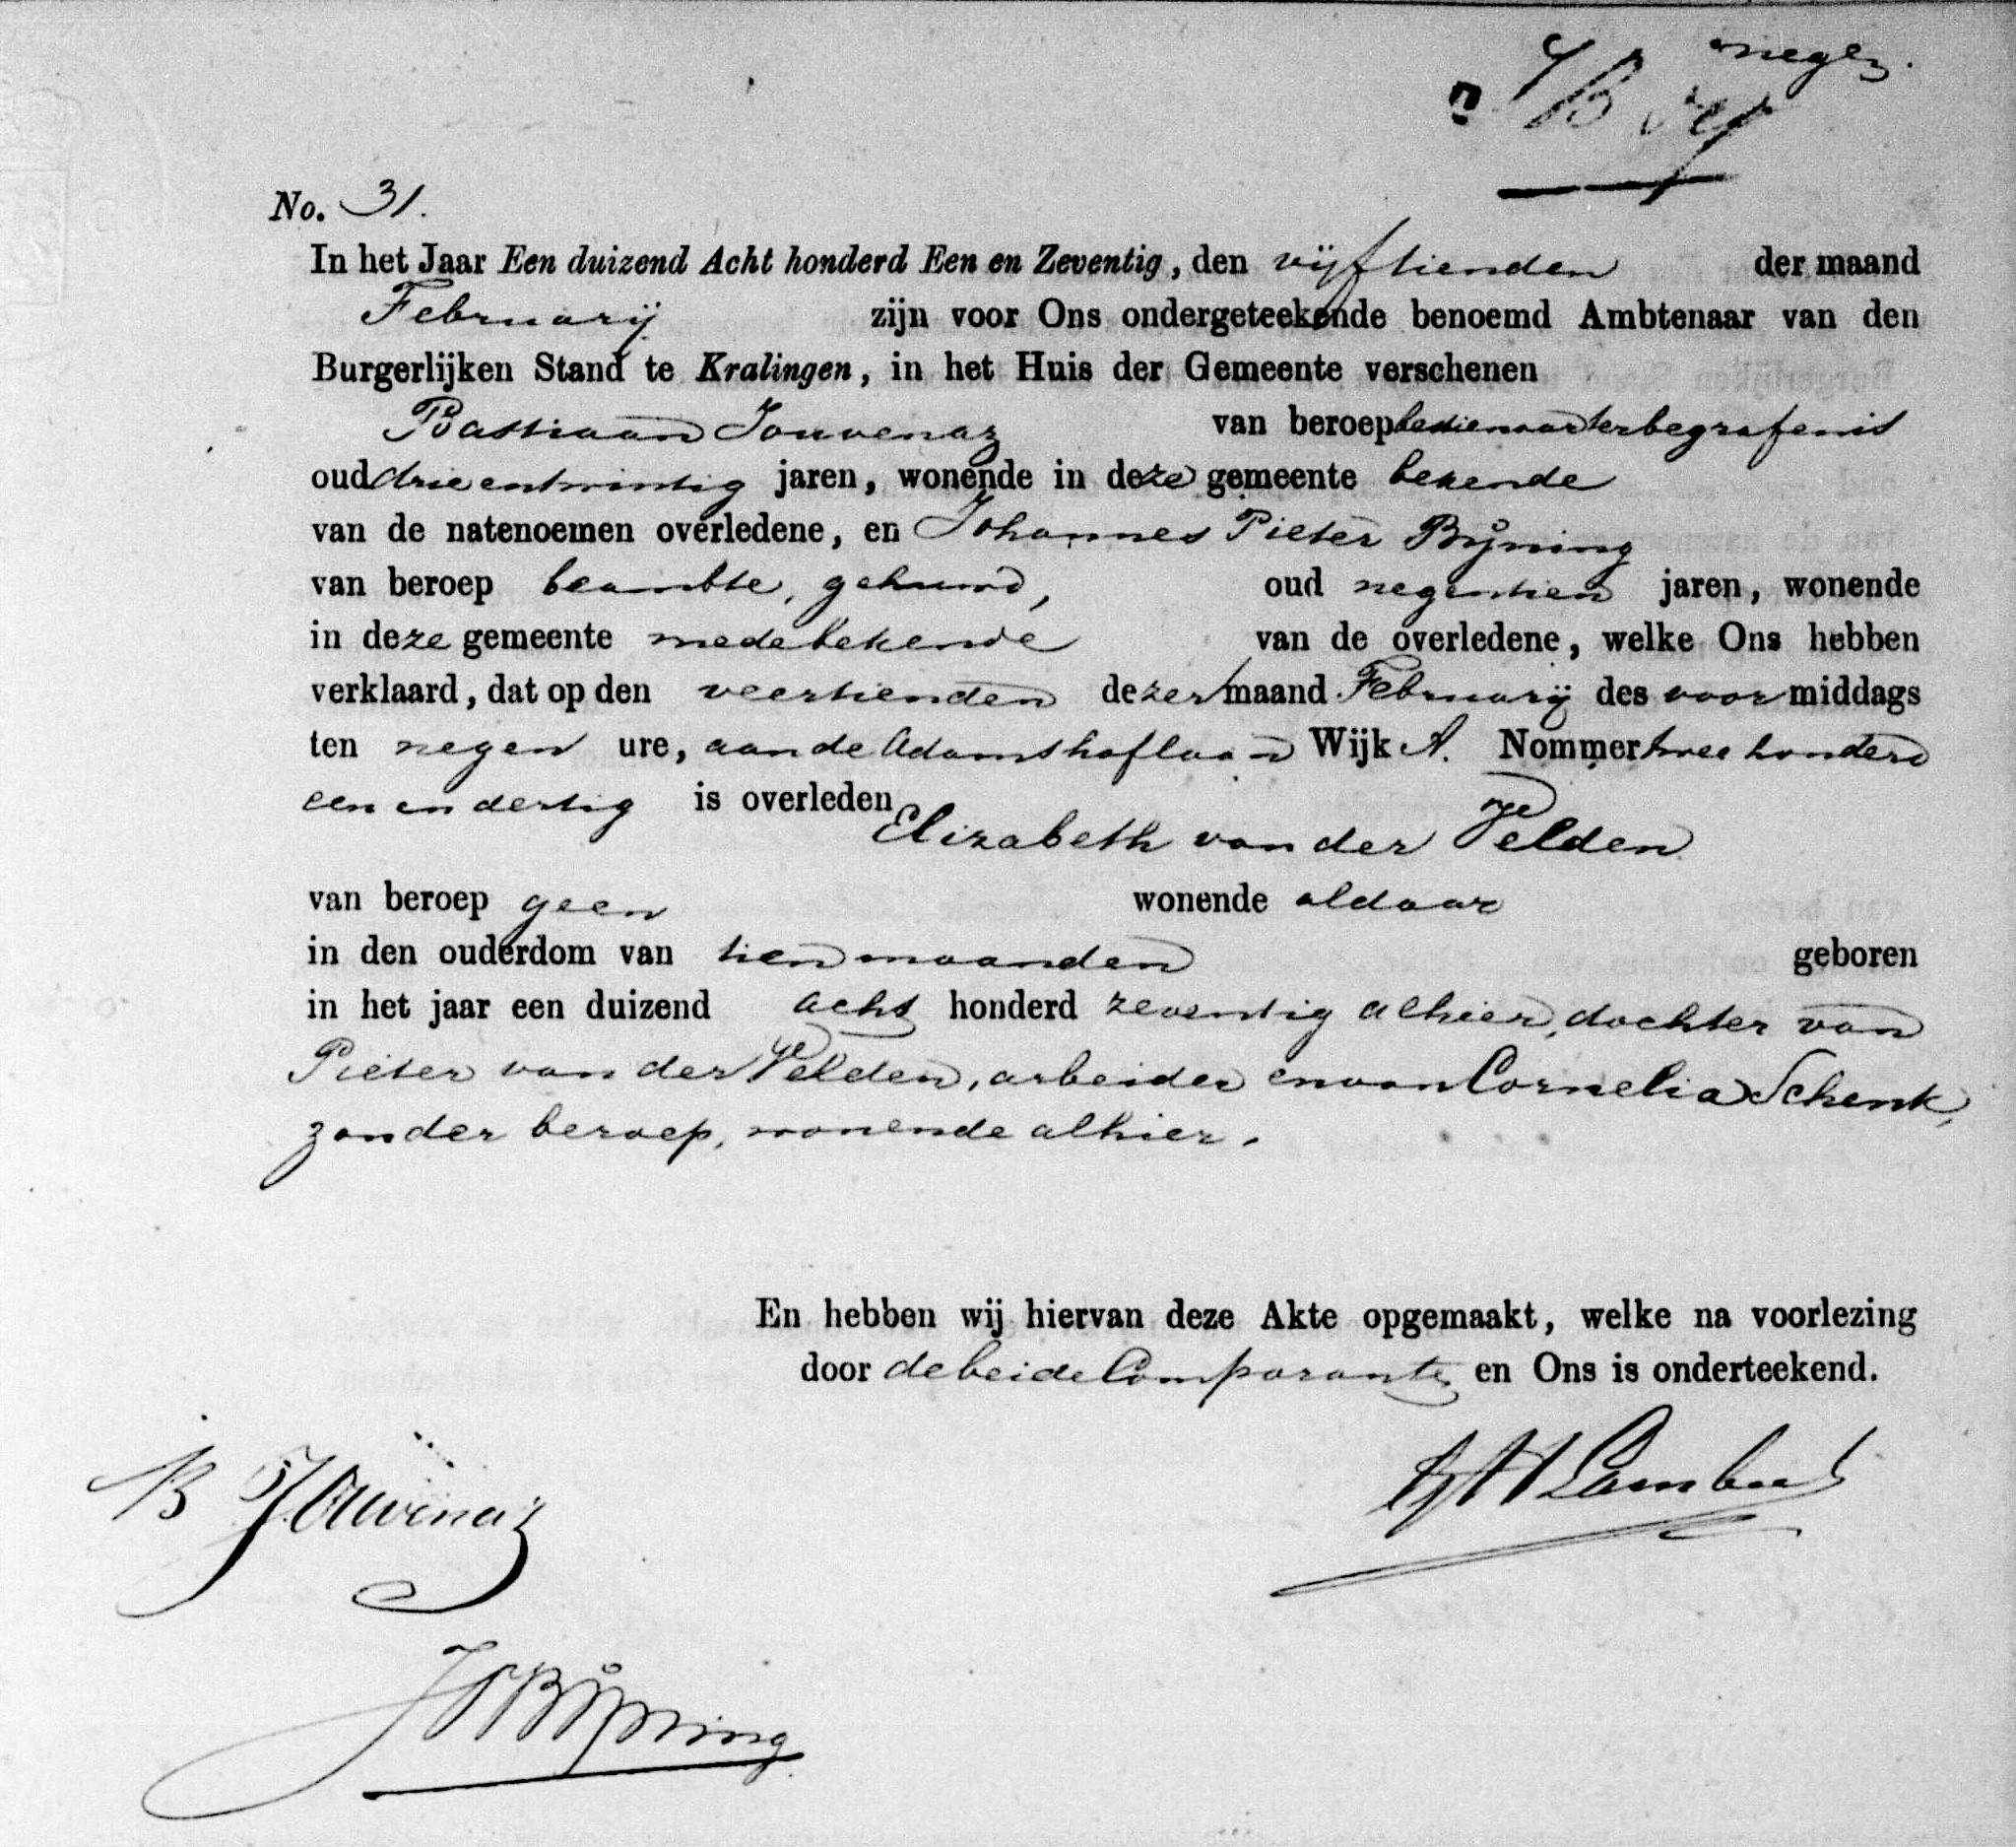 negen
No. 31.
In het Jaar Een duizend Acht honderd Een en Zeventig, den vijftienden der maand
Februarij zijn voor Ons ondergeteekende benoemd Ambtenaar van den
Burgerlijken Stand te Kralingen, in het Huis der Gemeente verschenen
Bastiaan Jouvenaz van beroep bedienaar ter begrafenis
oud drie en twintig jaren, wonende in deze gemeente bekende
van de natenoemen overledene, en Johannes Pieter Bijning
van beroep beambte, gehuwd, oud negentien jaren, wonende
in deze gemeente medebekende van de overledene, welke Ons hebben
verklaard, dat op den veertienden dezer maand Februarij des voormiddags
ten negen ure, aan de Adamshoflaan Wijk A. Nommer twee honderd
een en dertig is overleden
Elizabeth van der Velden
van beroep geen wonende aldaar
in den ouderdom van tien maanden geboren
in het jaar een duizend acht honderd zeventig alhier, dochter van
Pieter van der Velden, arbeider en van Cornelia Schenk,
zonder beroep, wonende alhier.
En hebben wij hiervan deze Akte opgemaakt, welke na voorlezing
door de beide Comparanten en Ons is onderteekend.
B Jouvenaz
JP Bijning